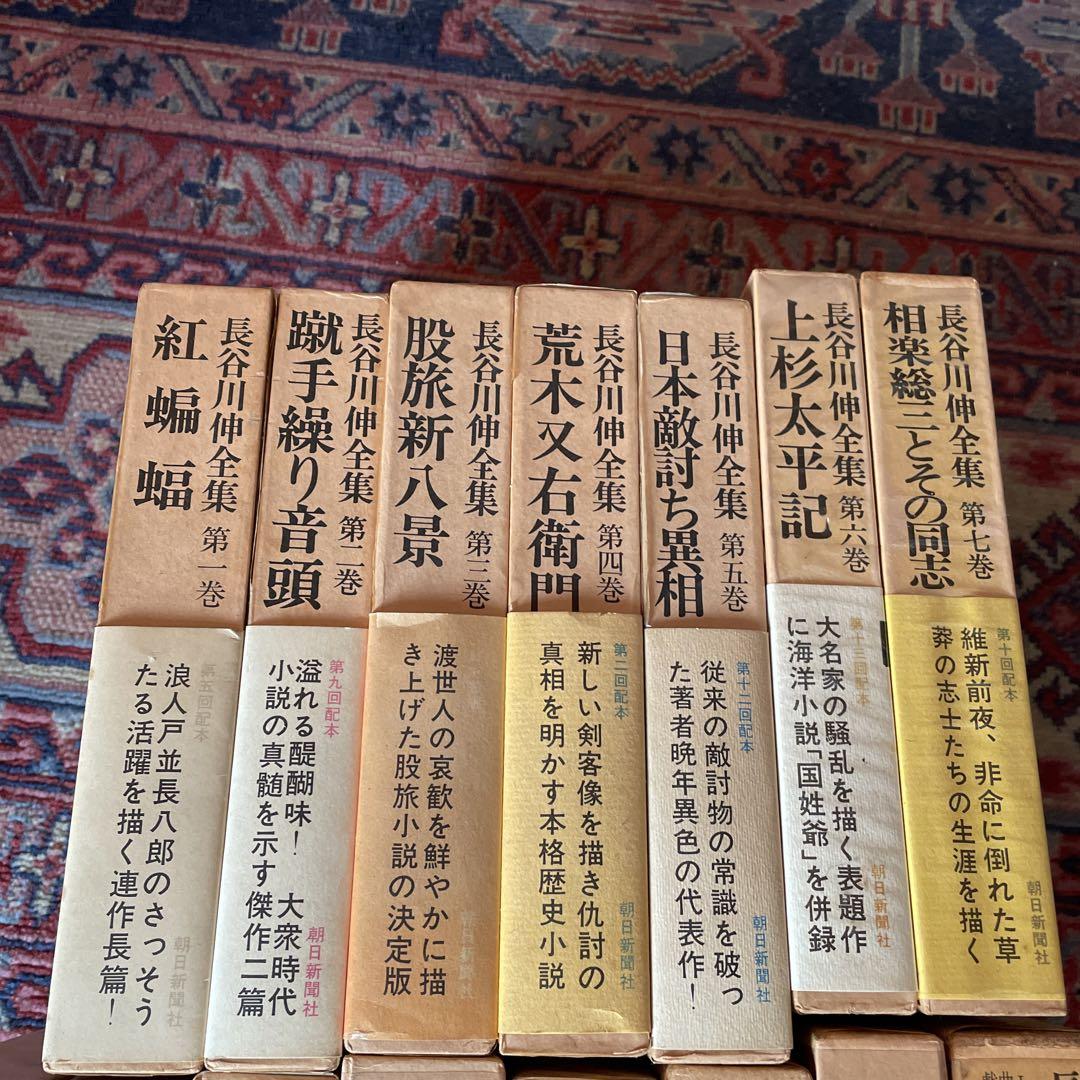 長谷川伸全集 第一巻
紅蝙蝠
第五回配本
浪人戸並長八郎のさっそう
たる活躍を描く連作長篇!
朝日新聞社
長谷川伸全集 第二巻
蹴手繰り音頭
第九回配本
溢れる醍醐味! 大衆時代
小説の真髄を示す傑作二篇
朝日新聞社
長谷川伸全集 第三巻
股旅新八景
渡世人の哀歓を鮮やかに描
き上げた股旅小説の決定版
朝日新聞社
長谷川伸全集 第四巻
荒木又右衛門
第二回配本
新しい剣客像を描き仇討の
真相を明かす本格歴史小説
朝日新聞社
長谷川伸全集 第五巻
日本敵討ち異相
第十二回配本
従来の敵討物の常識を破っ
た著者晩年異色の代表作!
朝日新聞社
長谷川伸全集 第六巻
上杉太平記
第十三回配本
大名家の騒乱を描く表題作
に海洋小説「国姓爺」を併録
朝日新聞社
長谷川伸全集 第七巻
相楽総三とその同志
第十回配本
維新前夜、非命に倒れた草
莽の志士たちの生涯を描く
朝日新聞社